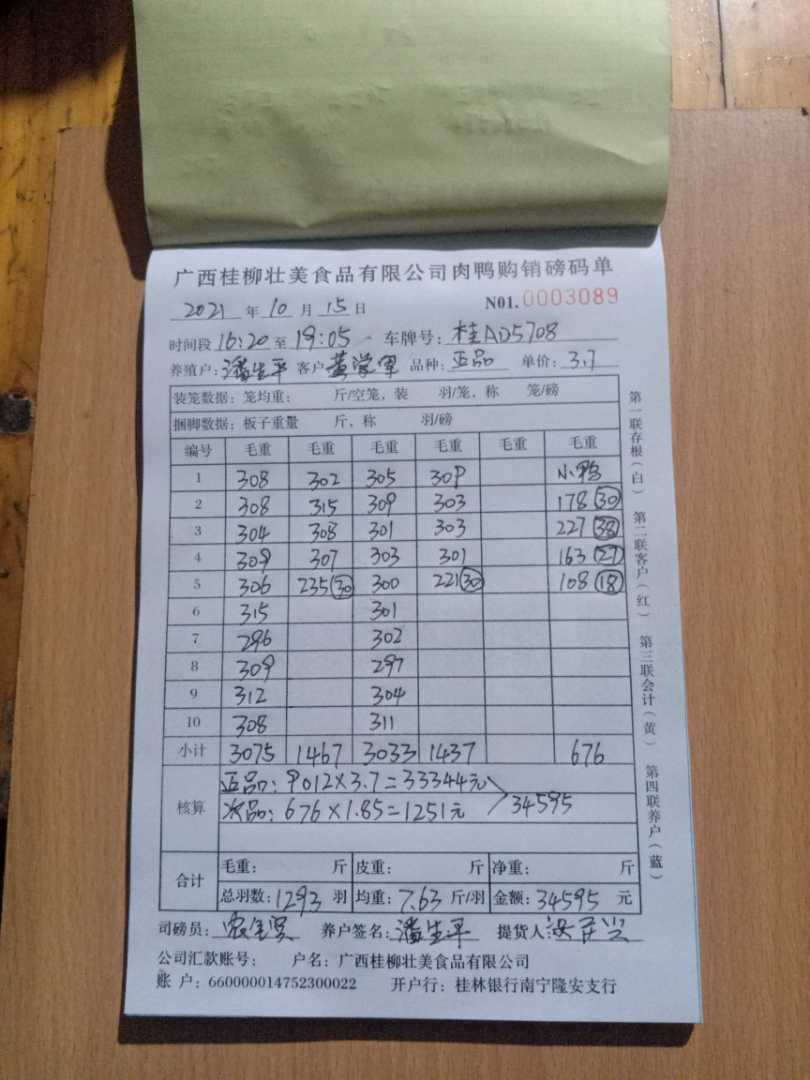 广西桂柳壮美食品有限公司肉鸭购销磅码单
2021 年 10 月 15 日 N01. 0003089
时间段 16:20 至 19:05 车牌号: 桂AD5708
养殖户: 潘生平 客户 黄学军 品种: 正品 单价: 3.7
装笼数据: 笼均重: 斤/空笼, 装 羽/笼, 称 笼/磅
捆脚数据: 板子重量 斤, 称 羽/磅
编号 毛重 毛重 毛重 毛重 毛重 毛重
1 308 302 305 309 小鸭
2 308 315 309 303 178 30
3 304 308 301 303 227 38
4 309 307 303 301 163 27
5 306 235 30 300 221 30 108 18
6 315 301
7 296 302
8 309 297
9 312 304
10 308 311
小计 3075 1467 3033 1437 676
核算
正品: 9012×3.7=33344元
次品: 676×1.85=1251元
34595
合计
毛重: 斤 皮重: 斤 净重: 斤
总羽数: 1293 羽 均重: 7.63 斤/羽 金额: 34595 元
司磅员: 养户签名: 潘生平 提货人:
公司汇款账号: 户名: 广西桂柳壮美食品有限公司
账 户: 660000014752300022 开户行: 桂林银行南宁隆安支行
第一联存根(白)
第二联客户(红)
第三联会计(黄)
第四联养户(蓝)